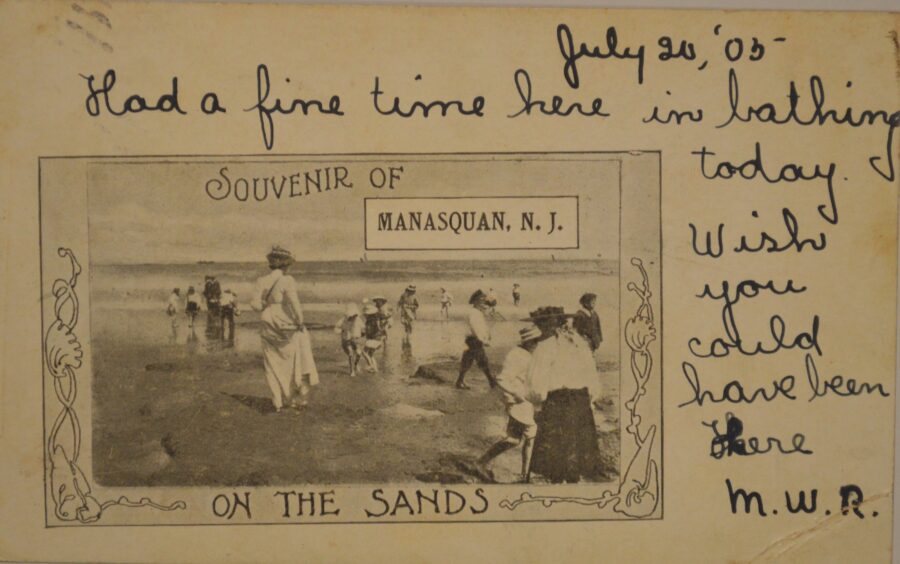 July 20, '05
Had a fine time here in bathing
today.
Wish
you
could
have been
here
M.W.R.
SOUVENIR OF
MANASQUAN, N. J.
ON THE SANDS